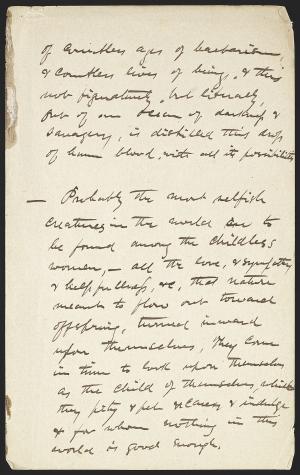 of countless ages of barbarism,
& countless lives of beings, & this
not figuratively, but literally,
Out of an ocean of darkness &
savagery, is distilled this drop
of human blood, with all its possibilities
— Probably the most selfish
creatures in the world are to
be found among the childless
women, — all the love, & sympathy
& helpfullness, &c, that nature
meant to flow out toward
offspring, turned inward
upon themselves, They come
in time to look upon themselves
as the child of themselves, which
they pity & pet & caress & indulge
& for whom nothing in this
world is good enough.